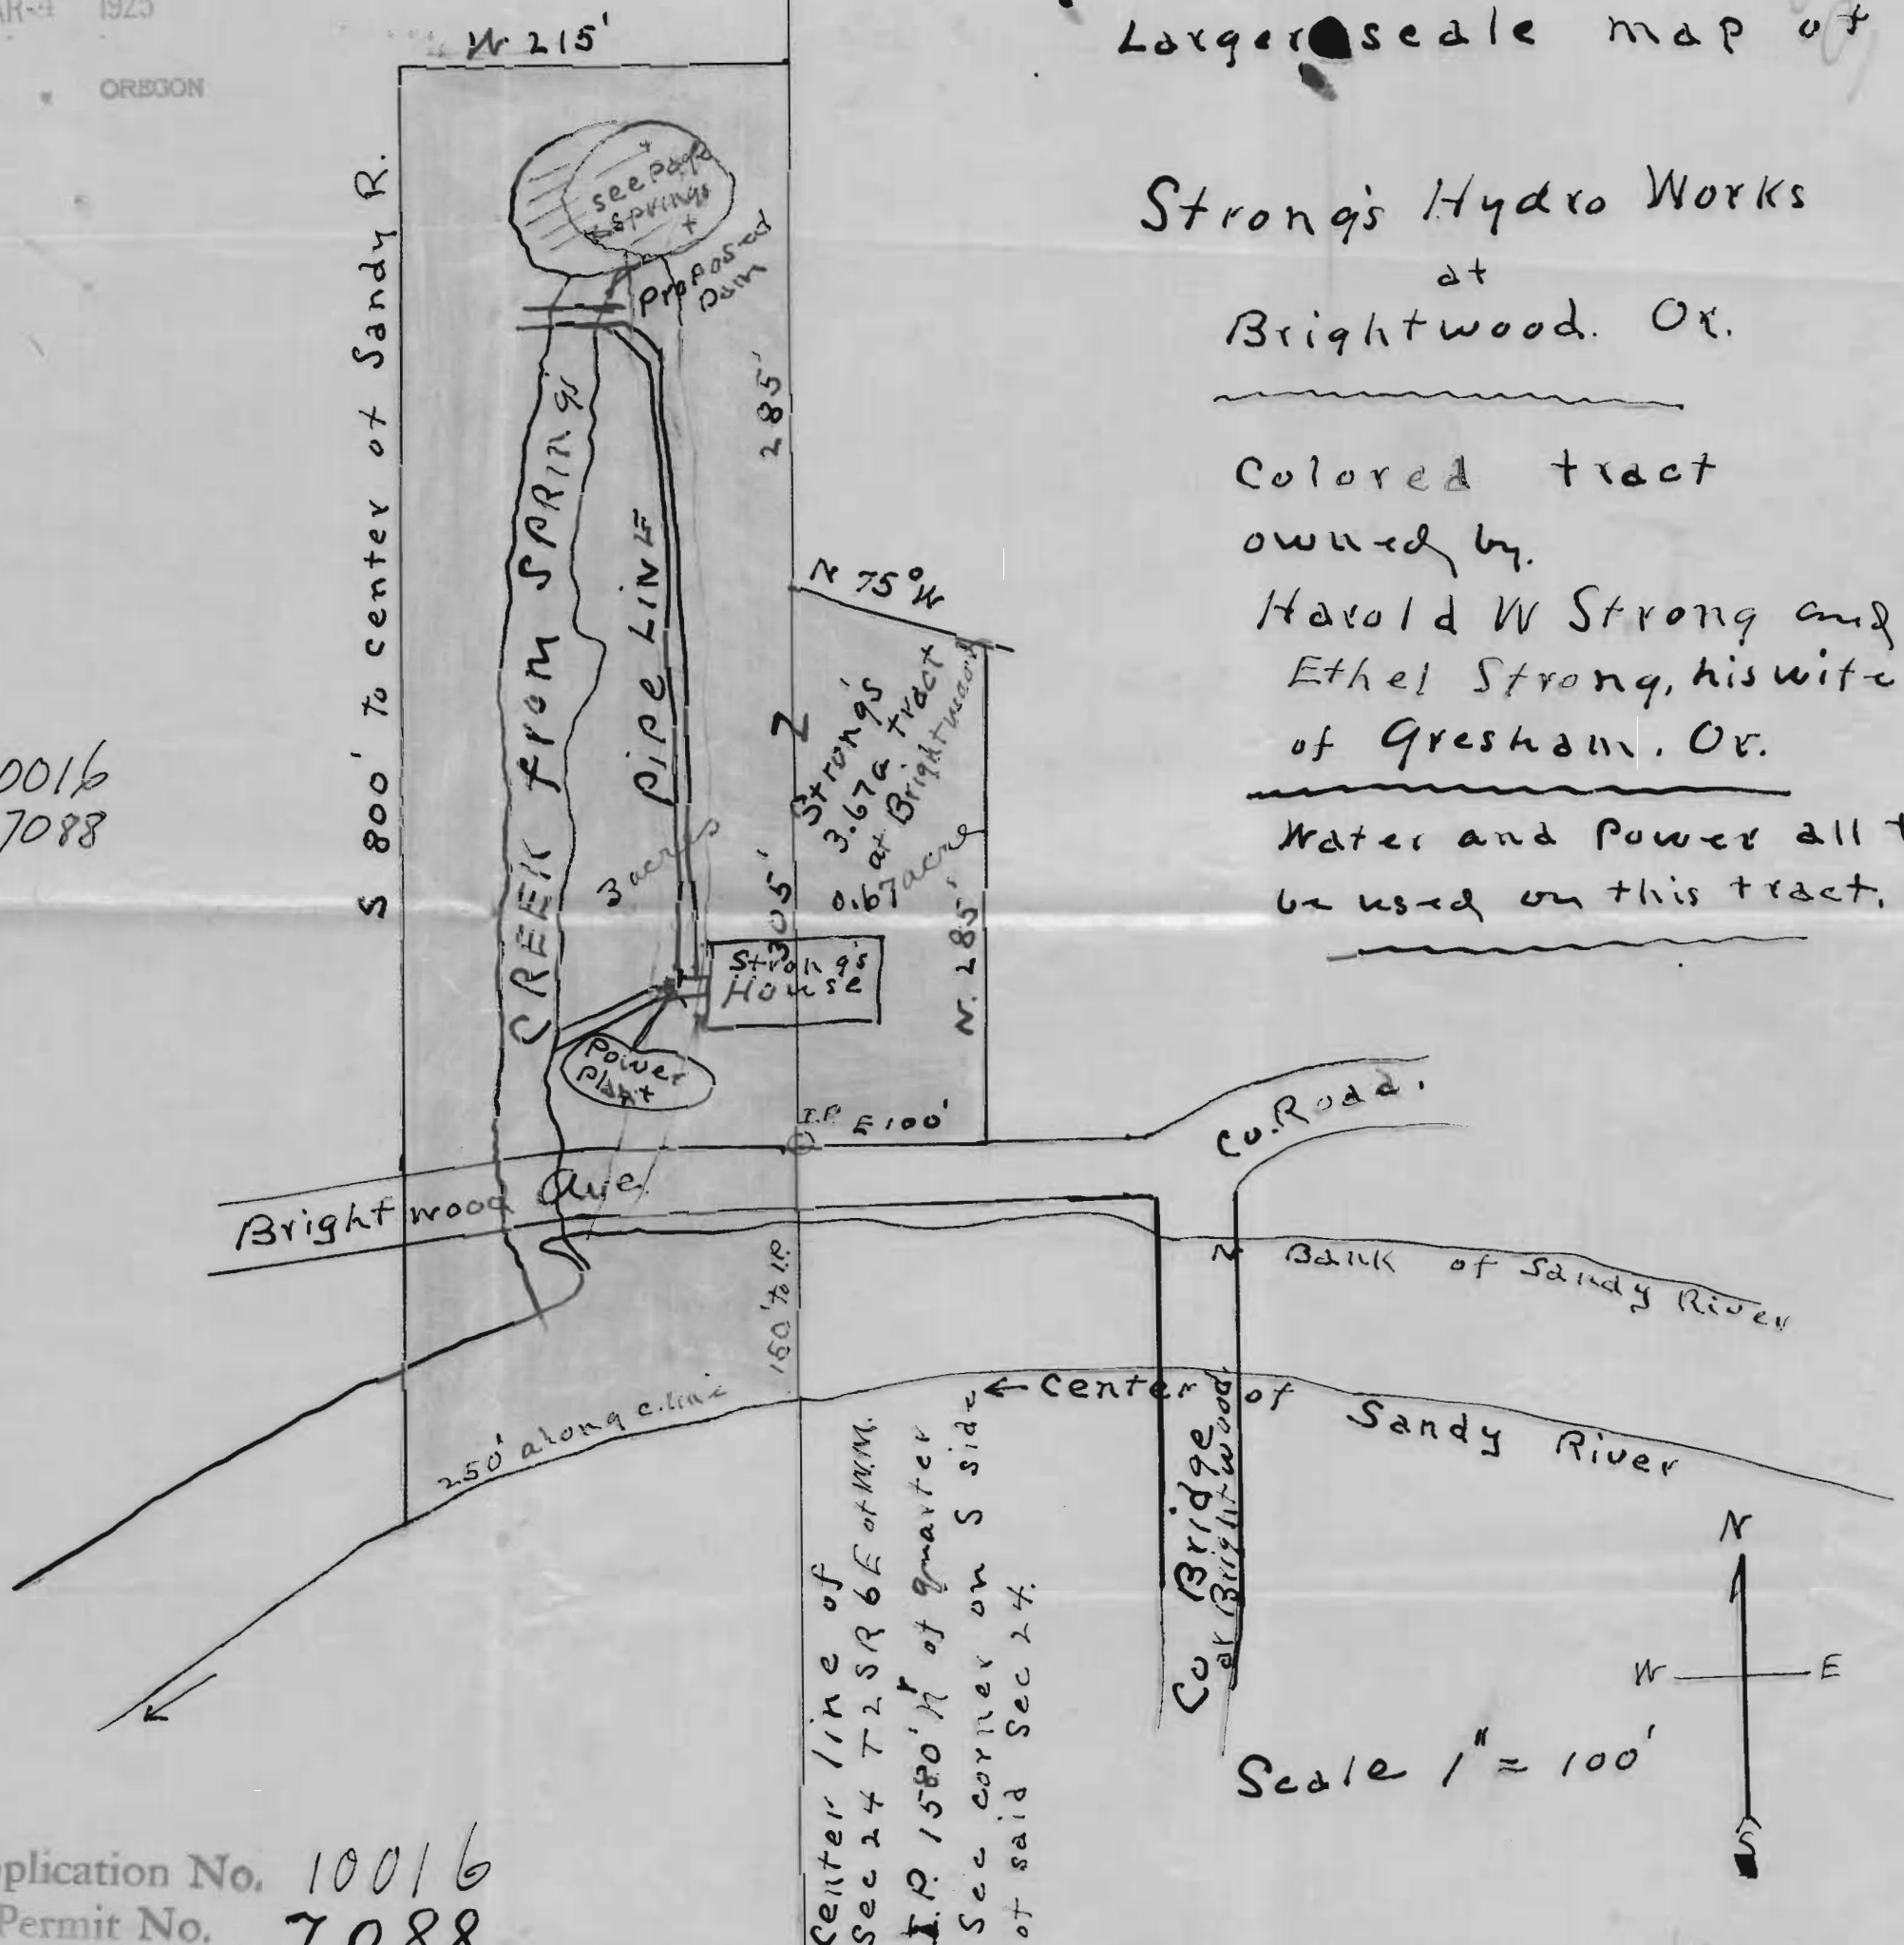 AR-4 1925
OREGON
Larger scale map of
Strong's Hydro Works
at
Brightwood. Or.
Colored tract
owned by.
Harold W Strong and
Ethel Strong, his wife
of Gresham. Or.
Water and Power all t
be used on this tract.
W. 215'
S 800' to center of Sandy R.
seepage
springs
Proposed
Dam
285'
CREEK from SPRINGS
PIPE LINE
N 75° W
Strong's
3.67a tract
at Brightwood
0.67 acre
3 acres
N
305'
N. 285'
Strong's
House
Power
Plant
I.P. E 100'
Co. Road.
Brightwood Ave
Bank of Sandy River
N
150' to I.P.
250' along c.line
← Center of Sandy River
Co Bridge
at Brightwood
Center line of
Sec 24 T2SR6E of W.M.
I.P. 1580' N of quarter
Sec corner on S side
of said Sec 24.
N
W E
S
Scale 1" = 100'
0016
7088
plication No. 10016
Permit No. 7088